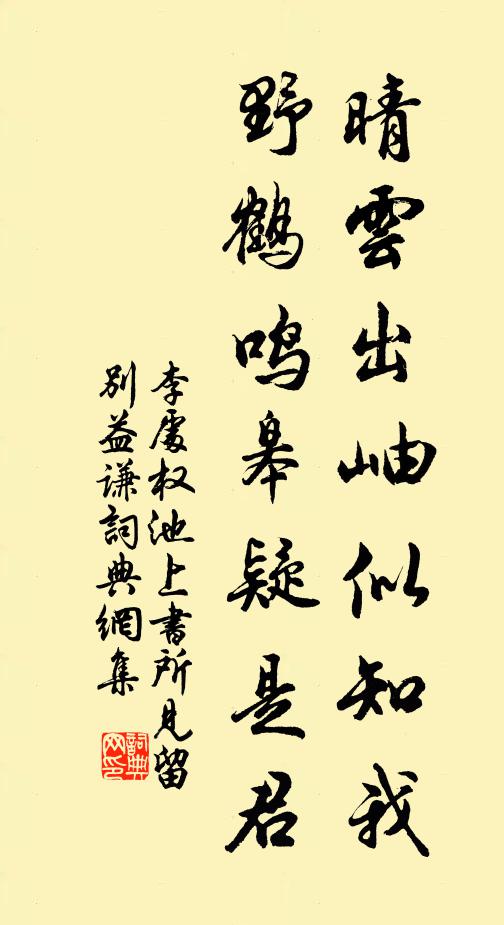 晴雲出岫似知我
野鶴鳴皋疑是君
李處权池上書所見留
別益谦詞典網集
詞典
网印